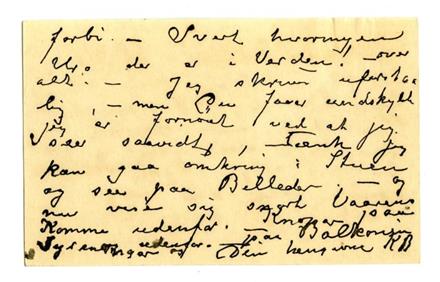 forbi. – Svært hvor megen
Uro der er i Verden! – over
alt. – Jeg skriver uforstaae
lig, – men Du faaer undskylde
jeg er fornøiet ved at jeg
seer saavidt, tænk jeg
kan gaa omkring i Stuen
og see paa Billeder – og
nu viser sig snart Vaarens
Komme udenfor. – Knopper paa
Syrenerne udenfor. – paa Balkonen
Din hengivne KB